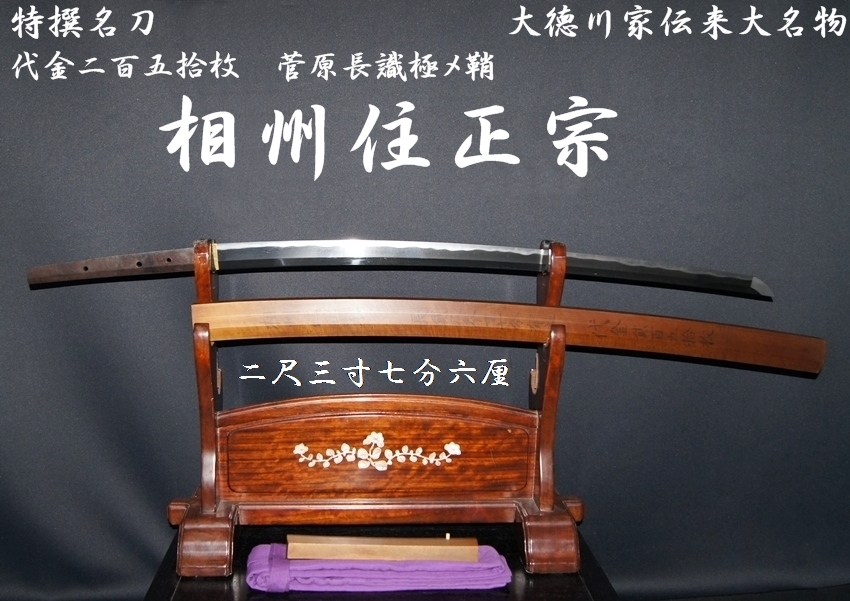 特撰名刀
大徳川家伝来大名物
代金二百五拾枚 菅原長識極メ鞘
相州住正宗
二尺三寸七分六厘